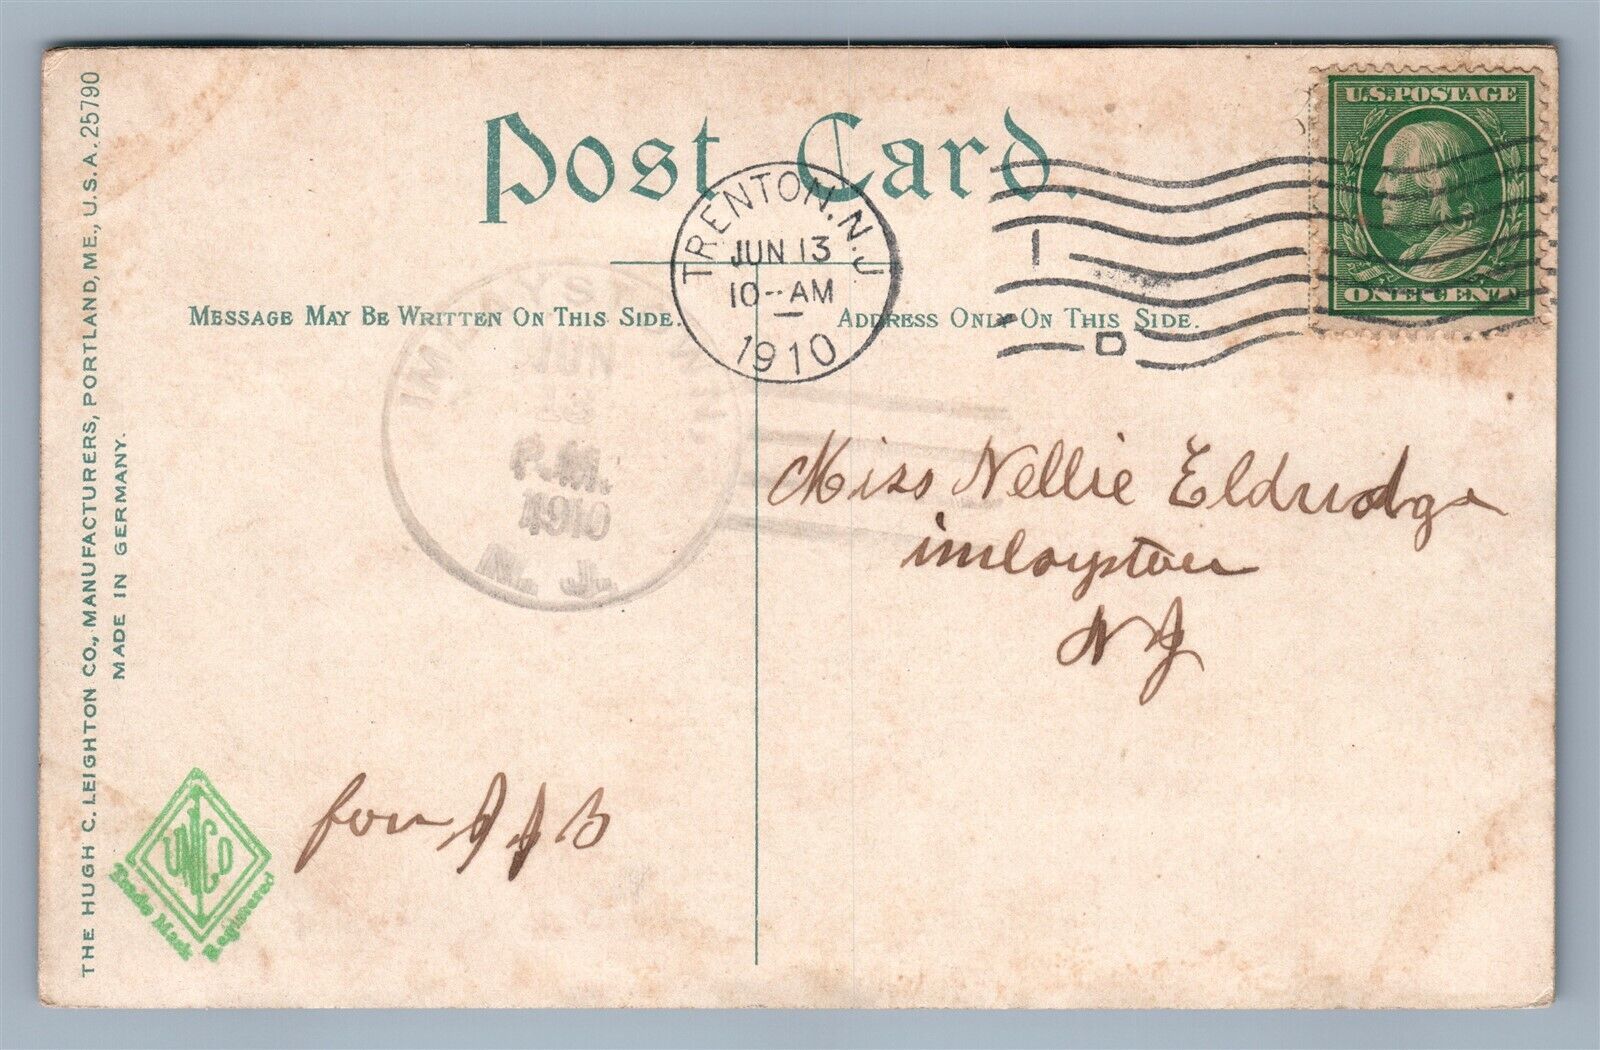 Post Card.
U.S.POSTAGE
ONE CENT
TRENTON, N.J.
JUN 13
10--AM
1910
1
D
MESSAGE MAY BE WRITTEN ON THIS SIDE.
ADDRESS ONLY ON THIS SIDE.
IMLAYSTOWN
JUN
13
P.M.
1910
N. J.
Miss Nellie Eldridge
imlaystown
N J
from J J B
THE HUGH C. LEIGHTON CO., MANUFACTURERS, PORTLAND, ME., U.S.A. 25790
MADE IN GERMANY.
UNCO
Trade Mark Registered